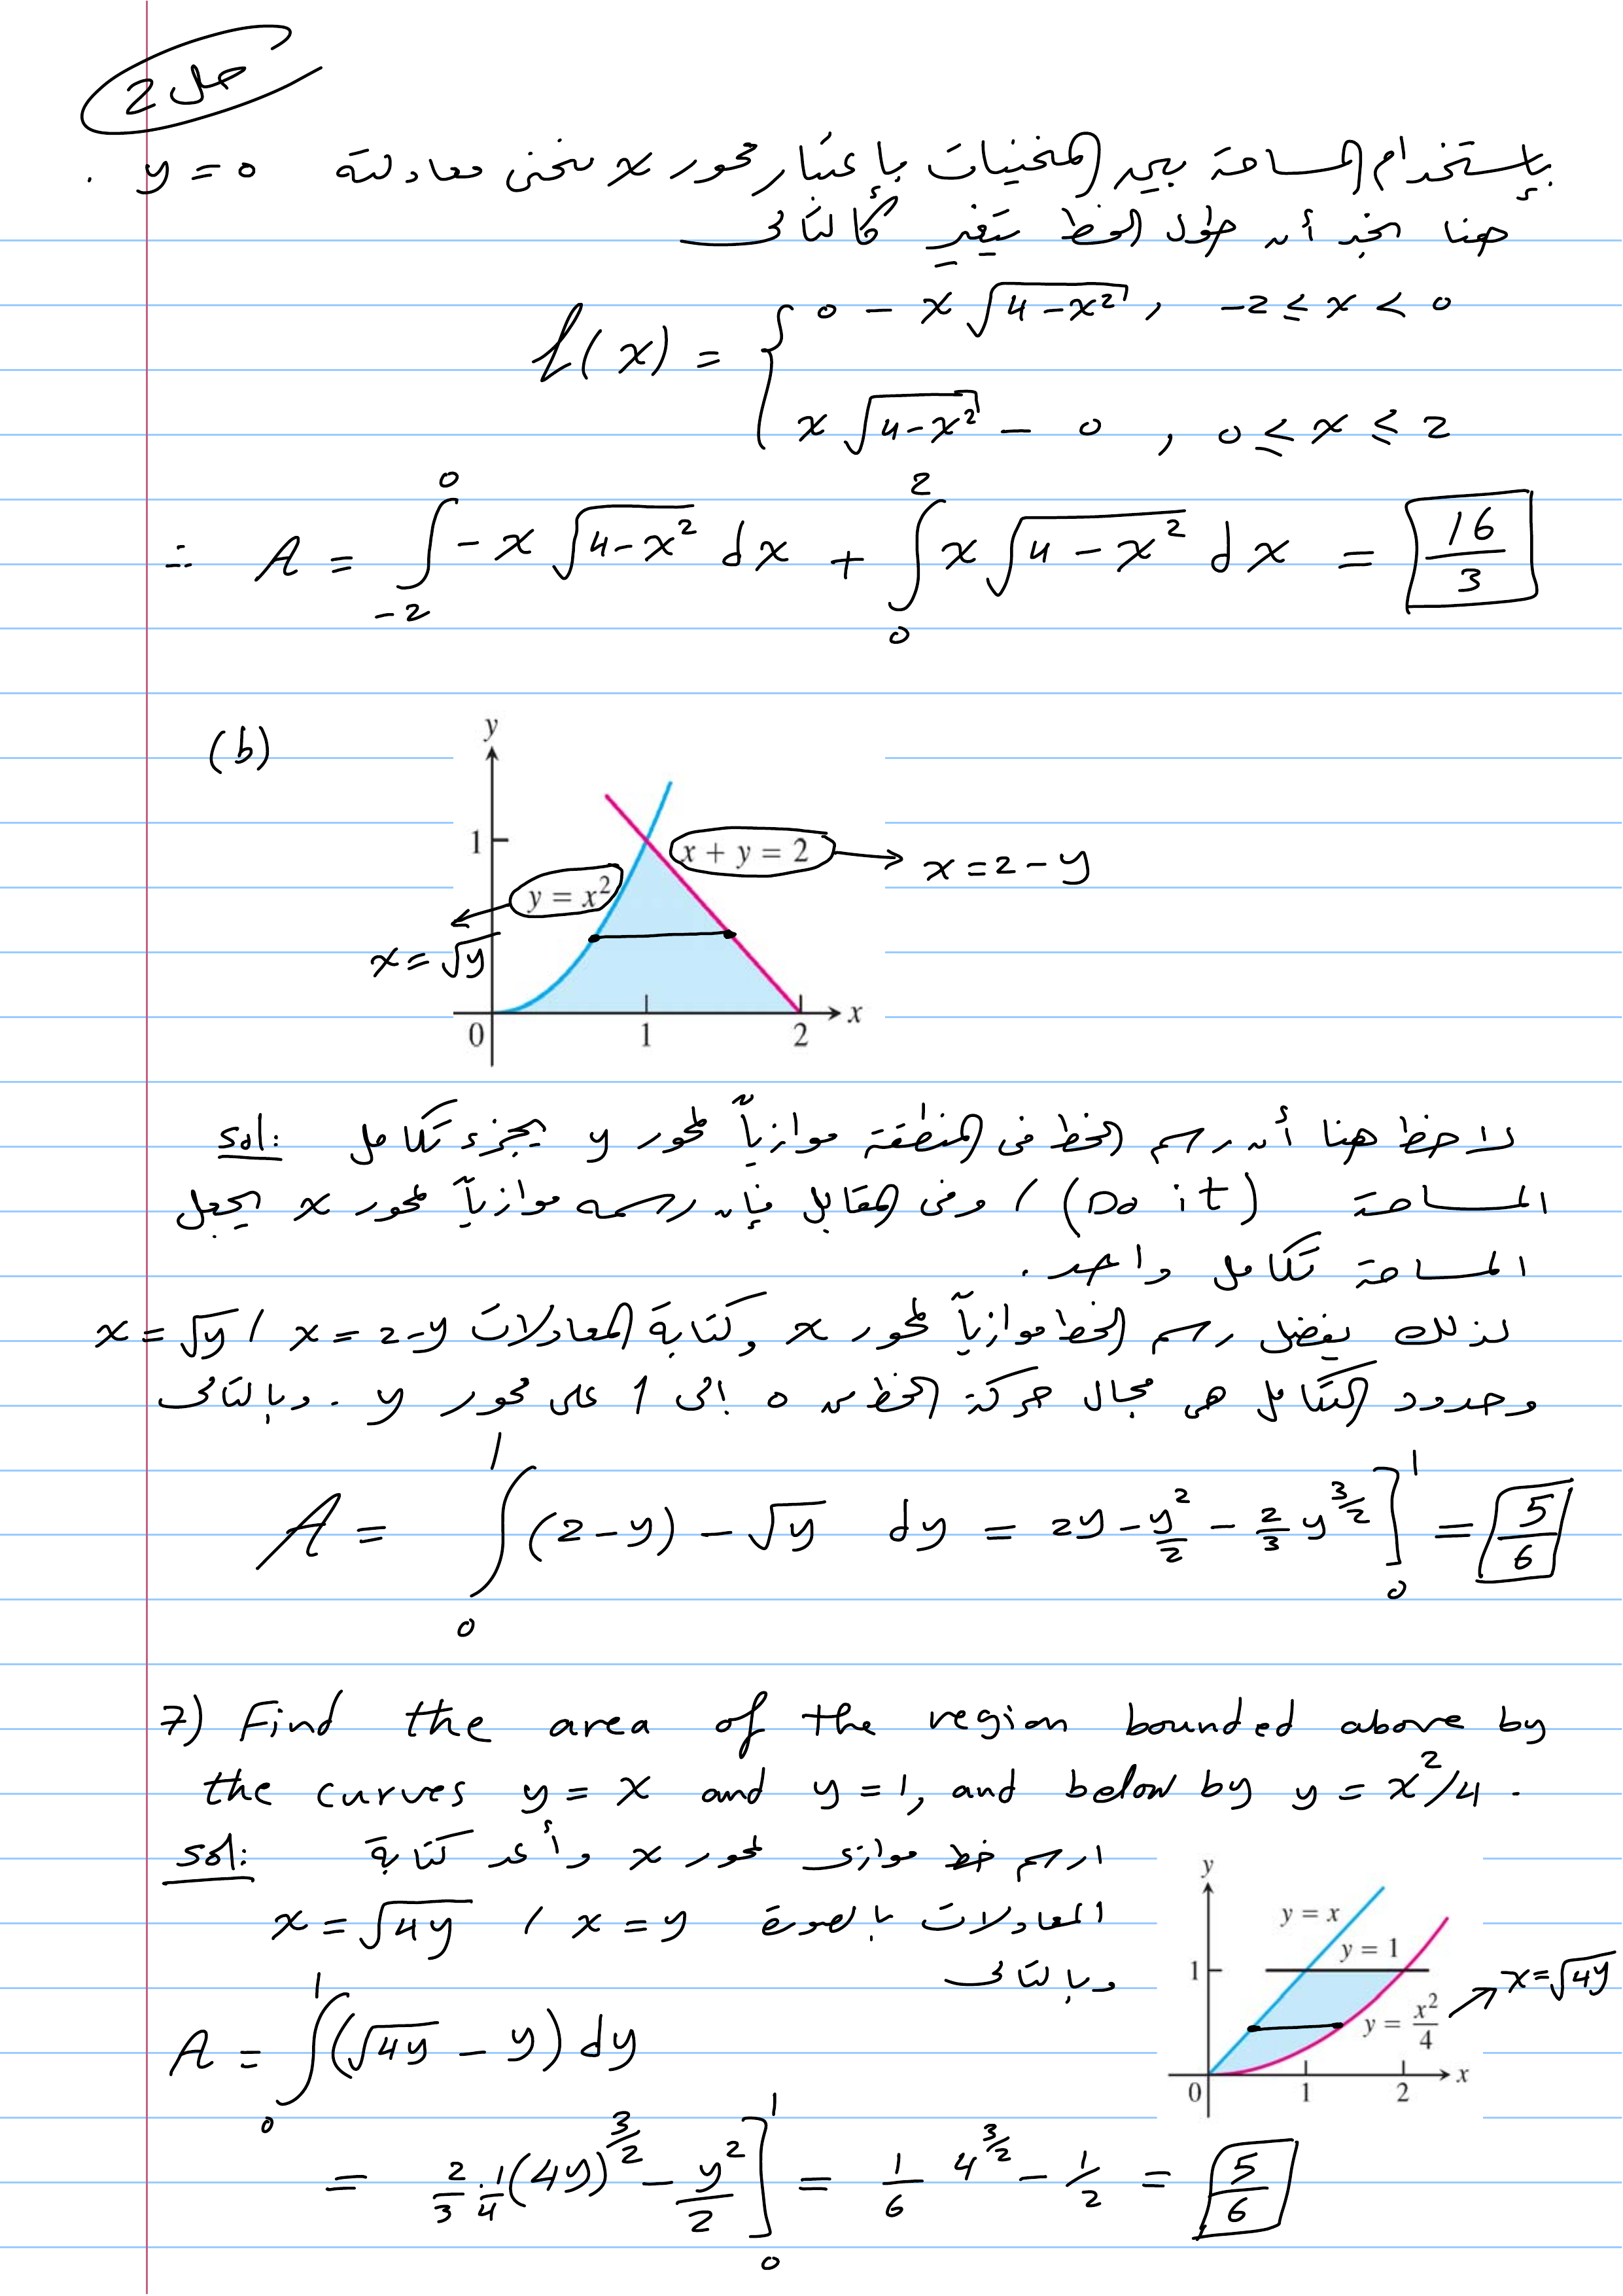 حل 2
بإستخدام المساحة بين المنحنيات بإعتبار محور x منحنى معادلته y = 0 .
هنا نجد أن طول الخط يتغير كالتالى
l(x) = { 0 - x √(4-x²) , -2 ≤ x < 0
x √(4-x²) - 0 , 0 ≤ x ≤ 2
∴ A = ∫_{-2}^{0} -x √(4-x²) dx + ∫_{0}^{2} x √(4-x²) dx = 16/3
(b)
y
1
x + y = 2
x = 2 - y
y = x²
x = √y
0 1 2 x
sol: لاحظ هنا أن رسم الخط فى المنطقة موازياً لمحور y يجزء تكامل
المساحة (Do it) ، وفى المقابل فإن رسمه موازياً لمحور x يجعل
المساحة تكامل واحد .
لذلك يفضل رسم الخط موازياً لمحور x وكتابة المعادلات x = 2-y ، x = √y
وحدود التكامل هى مجال حركة الخط من 0 إلى 1 على محور y . وبالتالى
A = ∫_{0}^{1} (2-y) - √y dy = 2y - y²/2 - 2/3 y^{3/2} ]_{0}^{1} = 5/6
7) Find the area of the region bounded above by
the curves y = x and y = 1, and below by y = x²/4 .
sol: ارسم خط موازى لمحور x وأعد كتابة
المعادلات بالصورة x = y ، x = √4y
وبالتالى
y
y = x
y = 1
1
x = √4y
y = x²/4
0 1 2 x
A = ∫_{0}^{1} (√4y - y) dy
= 2/3 · 1/4 (4y)^{3/2} - y²/2 ]_{0}^{1} = 1/6 4^{3/2} - 1/2 = 5/6